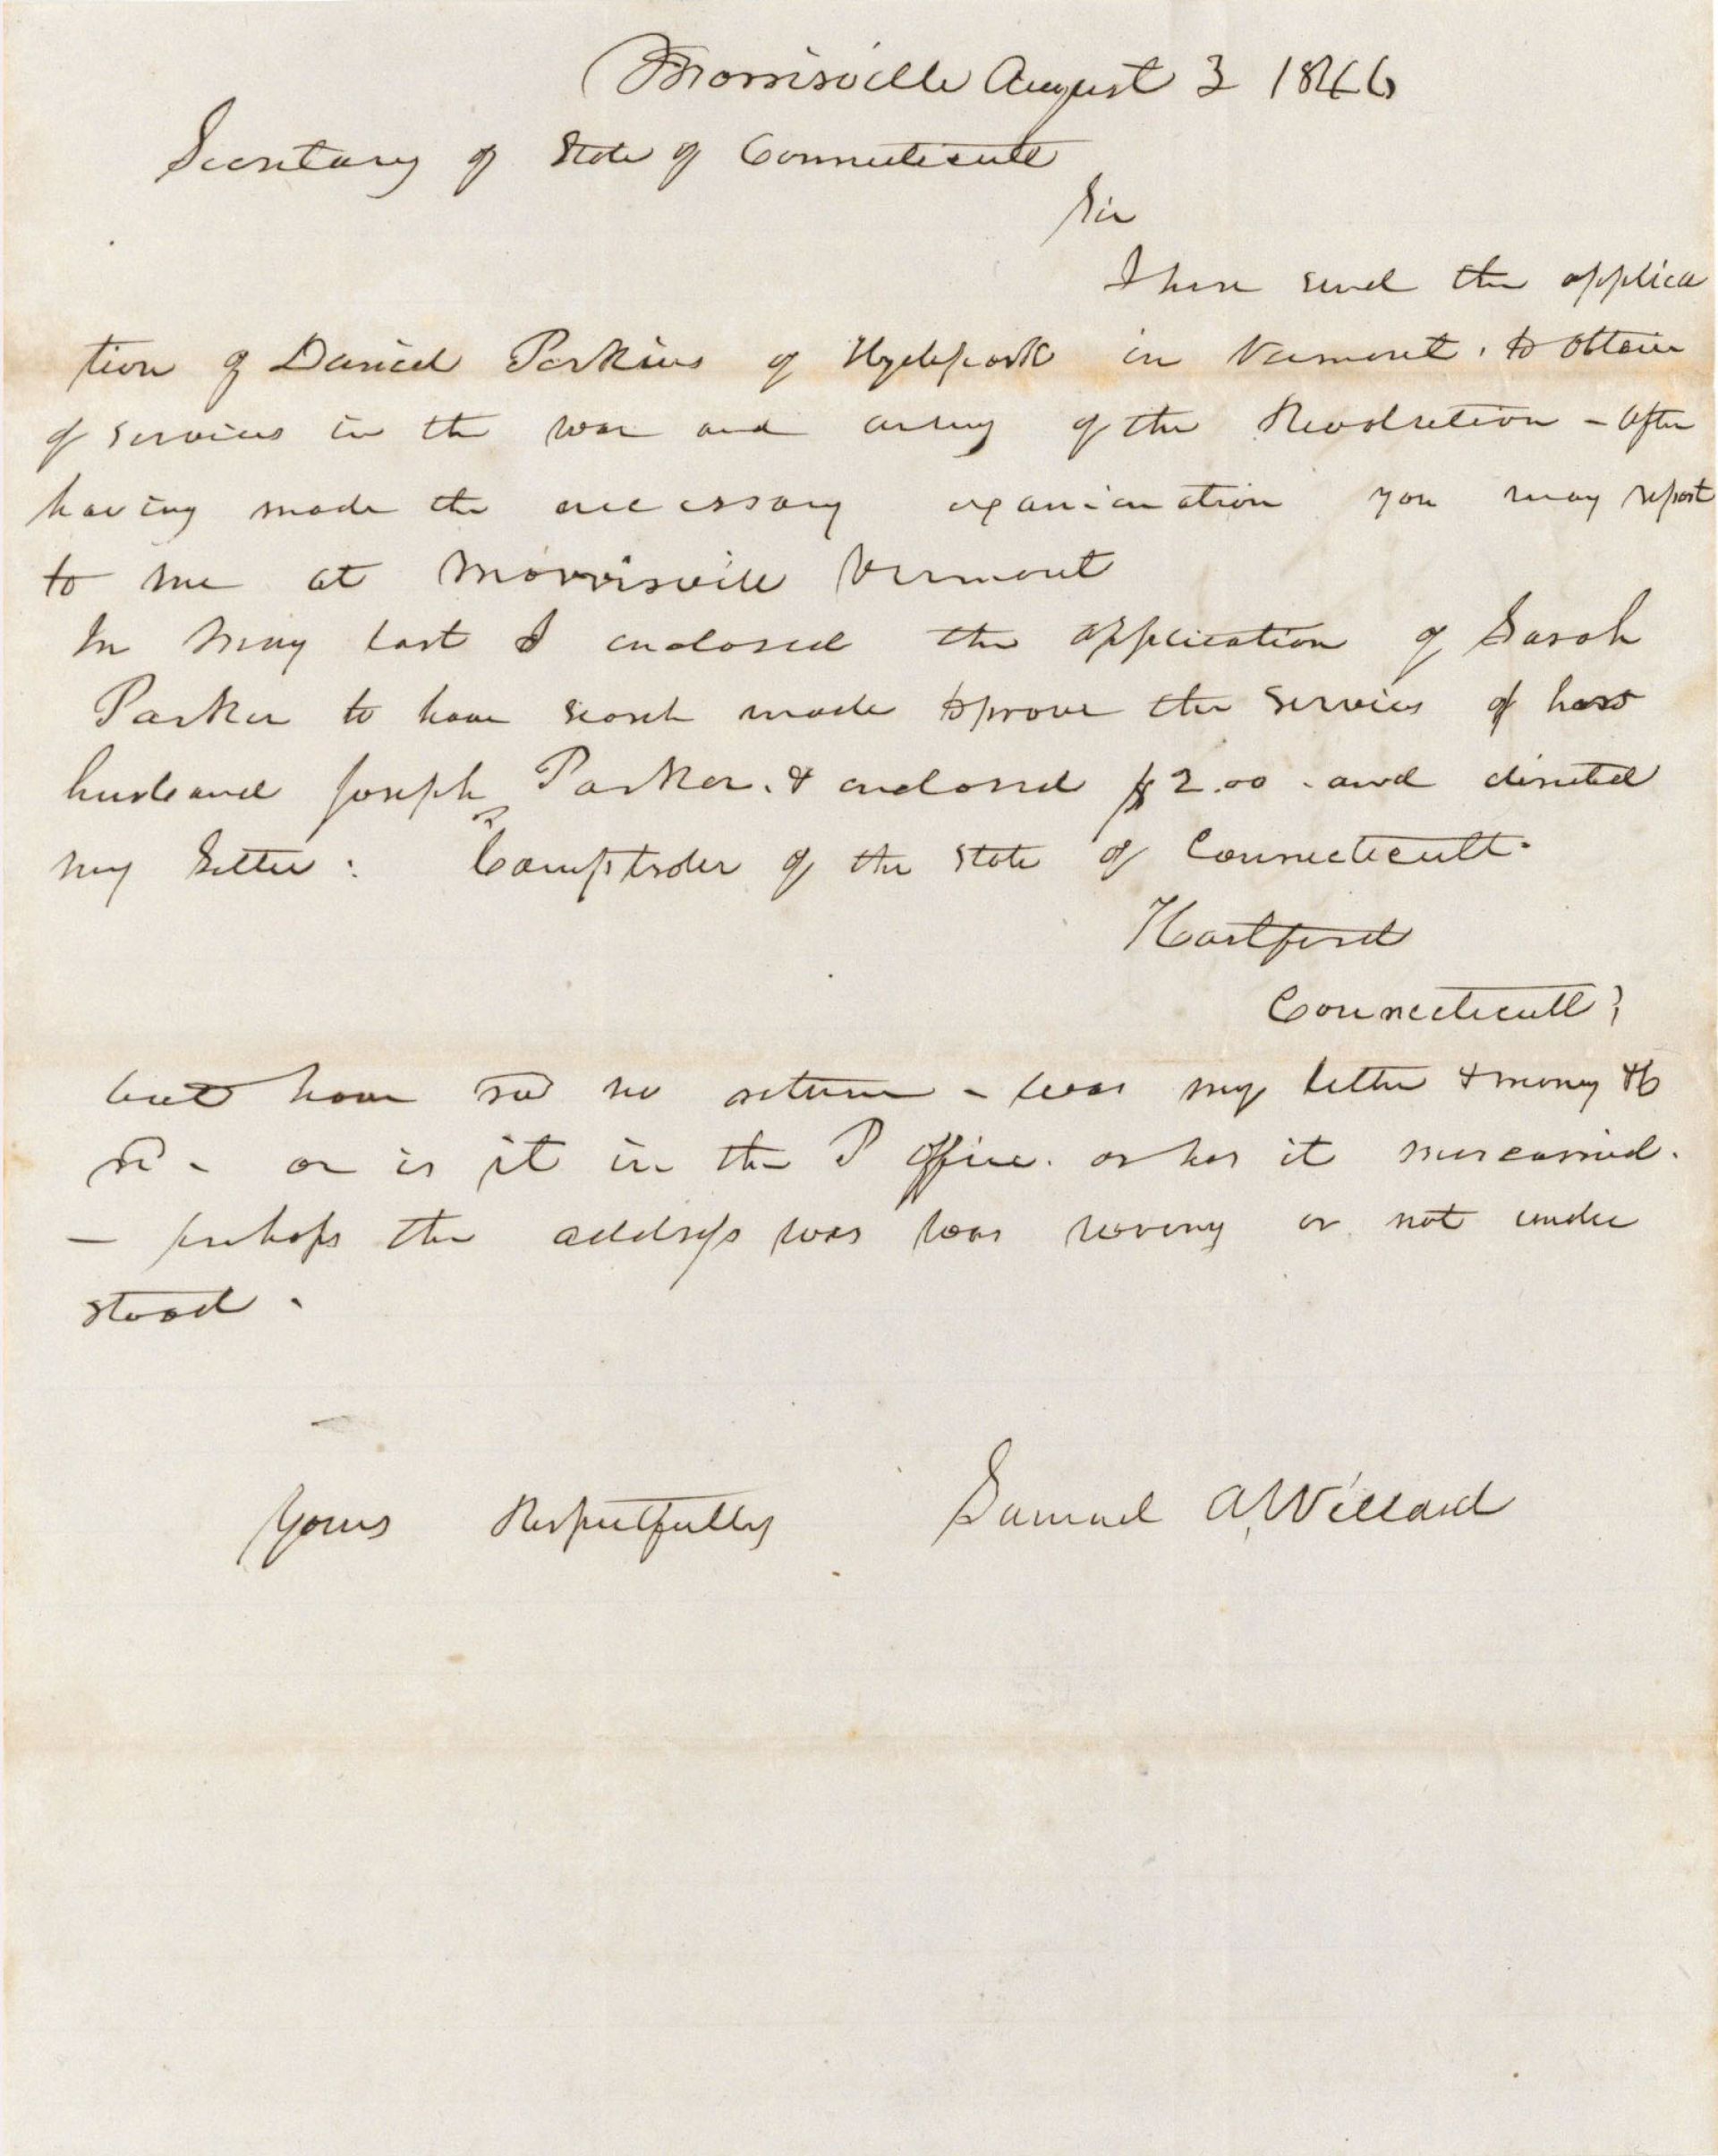 Morrisville August 3 1846
Secretary of State of Connecticutt
Sir
I here send the applica
tion of Daniel Perkins of Hydepark in Vermont, to obtain
of services in the war and army of the Revolution - After
having made the necessary examination you may report
to me at Morrisville Vermont
In May last I enclosed the application of Sarah
Parker to have search made to prove the services of her
husband Joseph Parker. & enclosed $2.00 - and directed
my letter: Comptroler of the State of Connecticutt.
Hartford
Connecticutt;
but have rd no return - was my letter & money
rd - or is it in the P Office. or has it miscarried.
- perhaps the address was was wrong or not under
stood.
Yours Respectfully Samuel A Willard